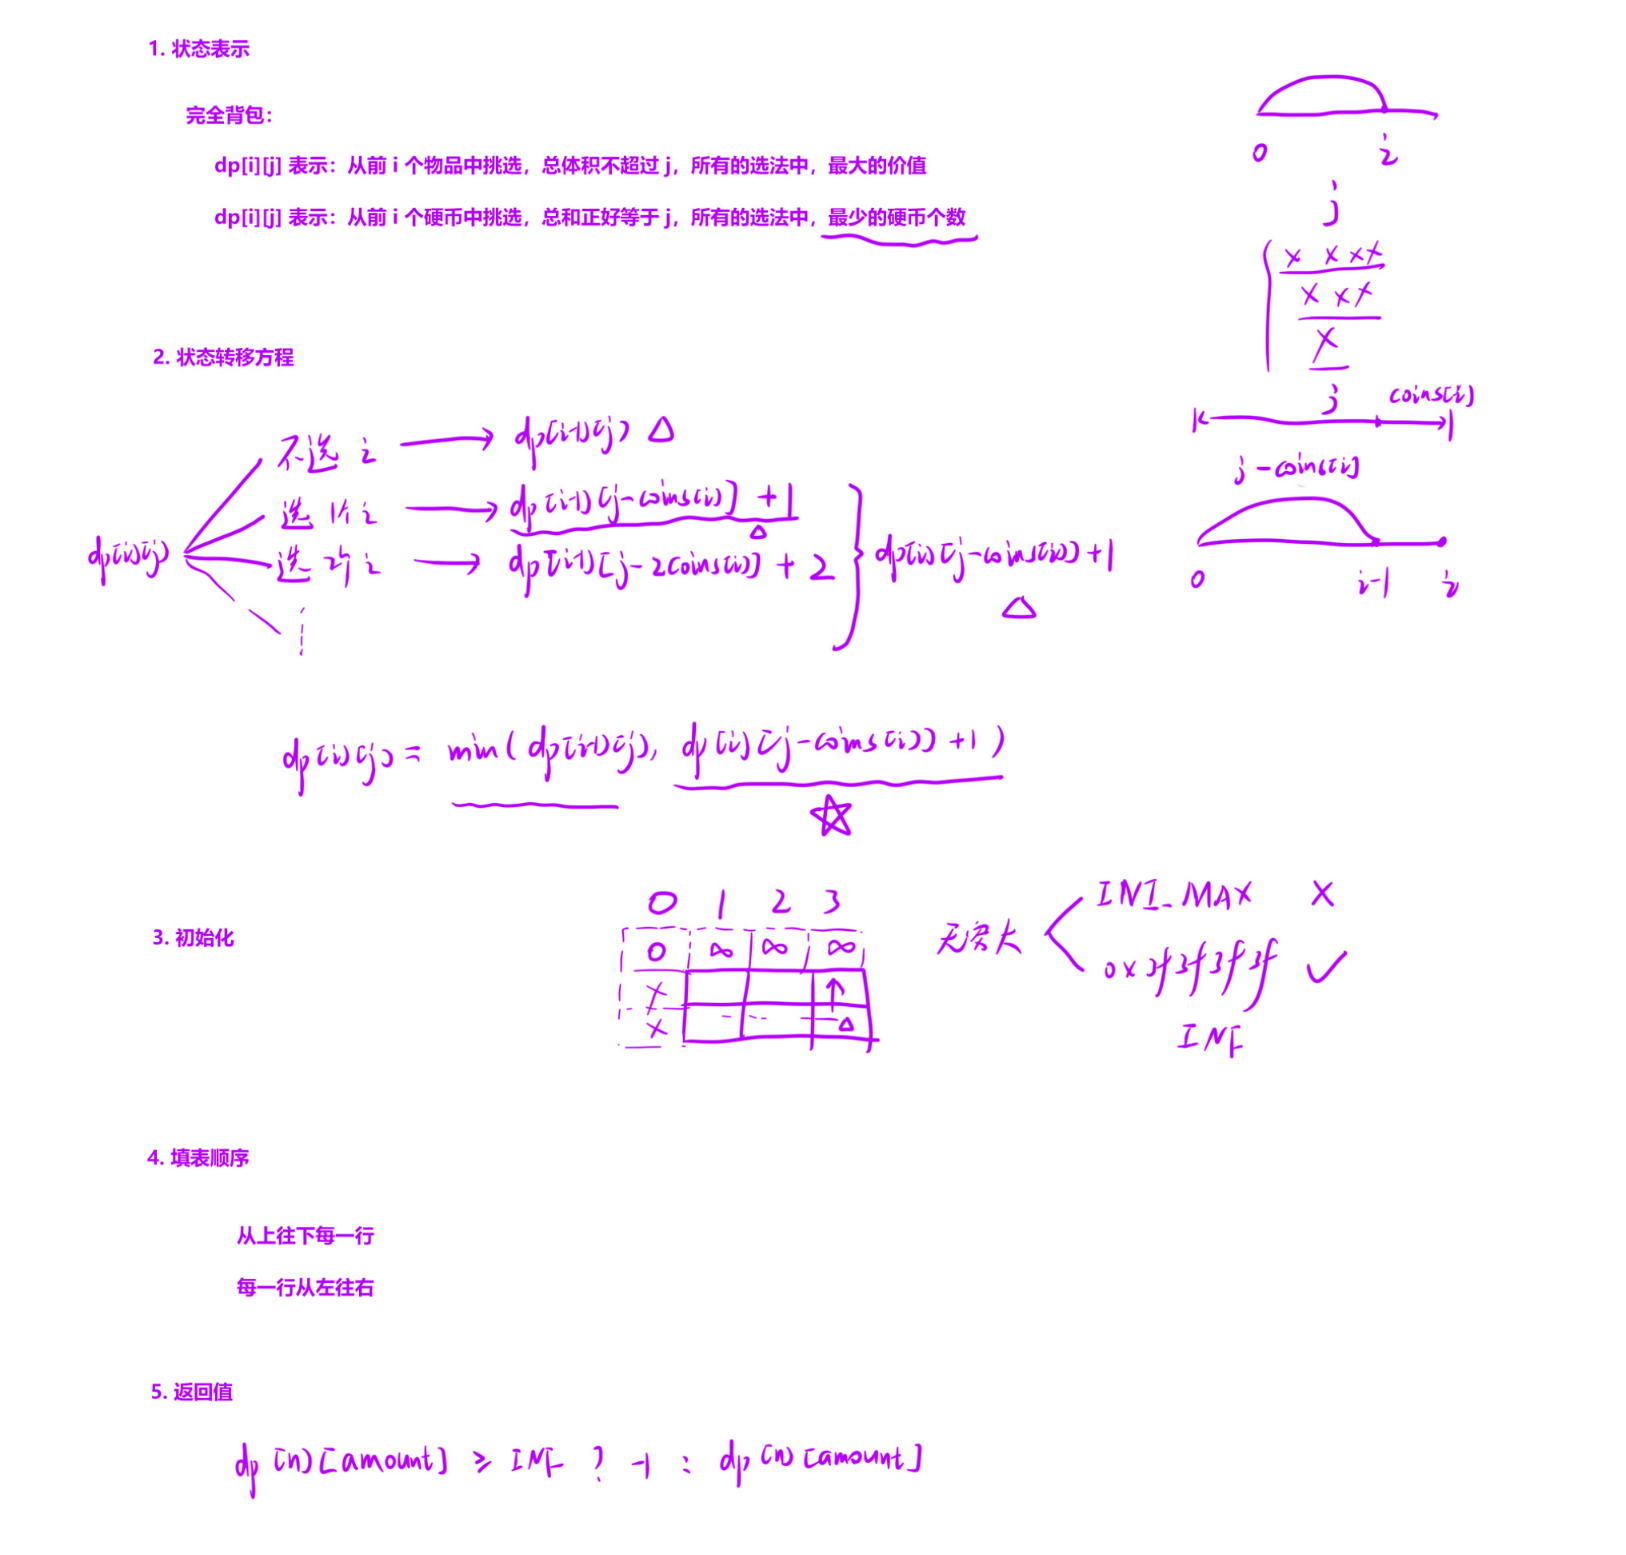 1. 状态表示
完全背包：
dp[i][j] 表示：从前 i 个物品中挑选，总体积不超过 j，所有的选法中，最大的价值
dp[i][j] 表示：从前 i 个硬币中挑选，总和正好等于 j，所有的选法中，最少的硬币个数
0 i
j
x x x x
x x x
x
j coins[i]
j - coins[i]
0 i-1 i
2. 状态转移方程
dp[i][j]
不选 i → dp[i-1][j] △
选 1个 i → dp[i-1][j-coins[i]] + 1 △
选 2个 i → dp[i-1][j-2coins[i]] + 2
dp[i][j-coins[i]] + 1 △
dp[i][j] = min( dp[i-1][j], dp[i][j-coins[i]] + 1 )
☆
3. 初始化
0 1 2 3
0 ∞ ∞ ∞
x ↑
x △
无穷大
INT_MAX X
0x3f3f3f3f ✓
INF
4. 填表顺序
从上往下每一行
每一行从左往右
5. 返回值
dp[n][amount] ≥ INF ? -1 : dp[n][amount]